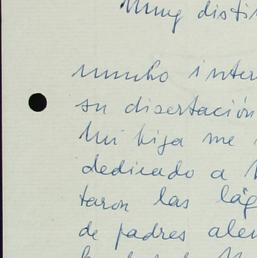 Muy disti
mucho inter
su disertación
Mi hija me
dedicado a
taron las lág
de padres ale